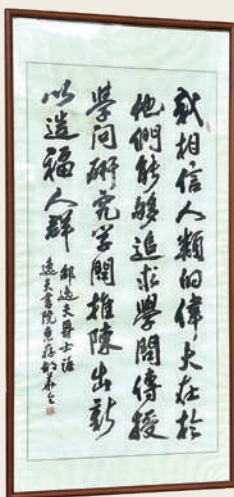 我相信人類的偉大在於
他們能够追求學問傳授
學問研究学問推陳出新
以造福人群
邵逸夫爵士語
逸夫書院惠存